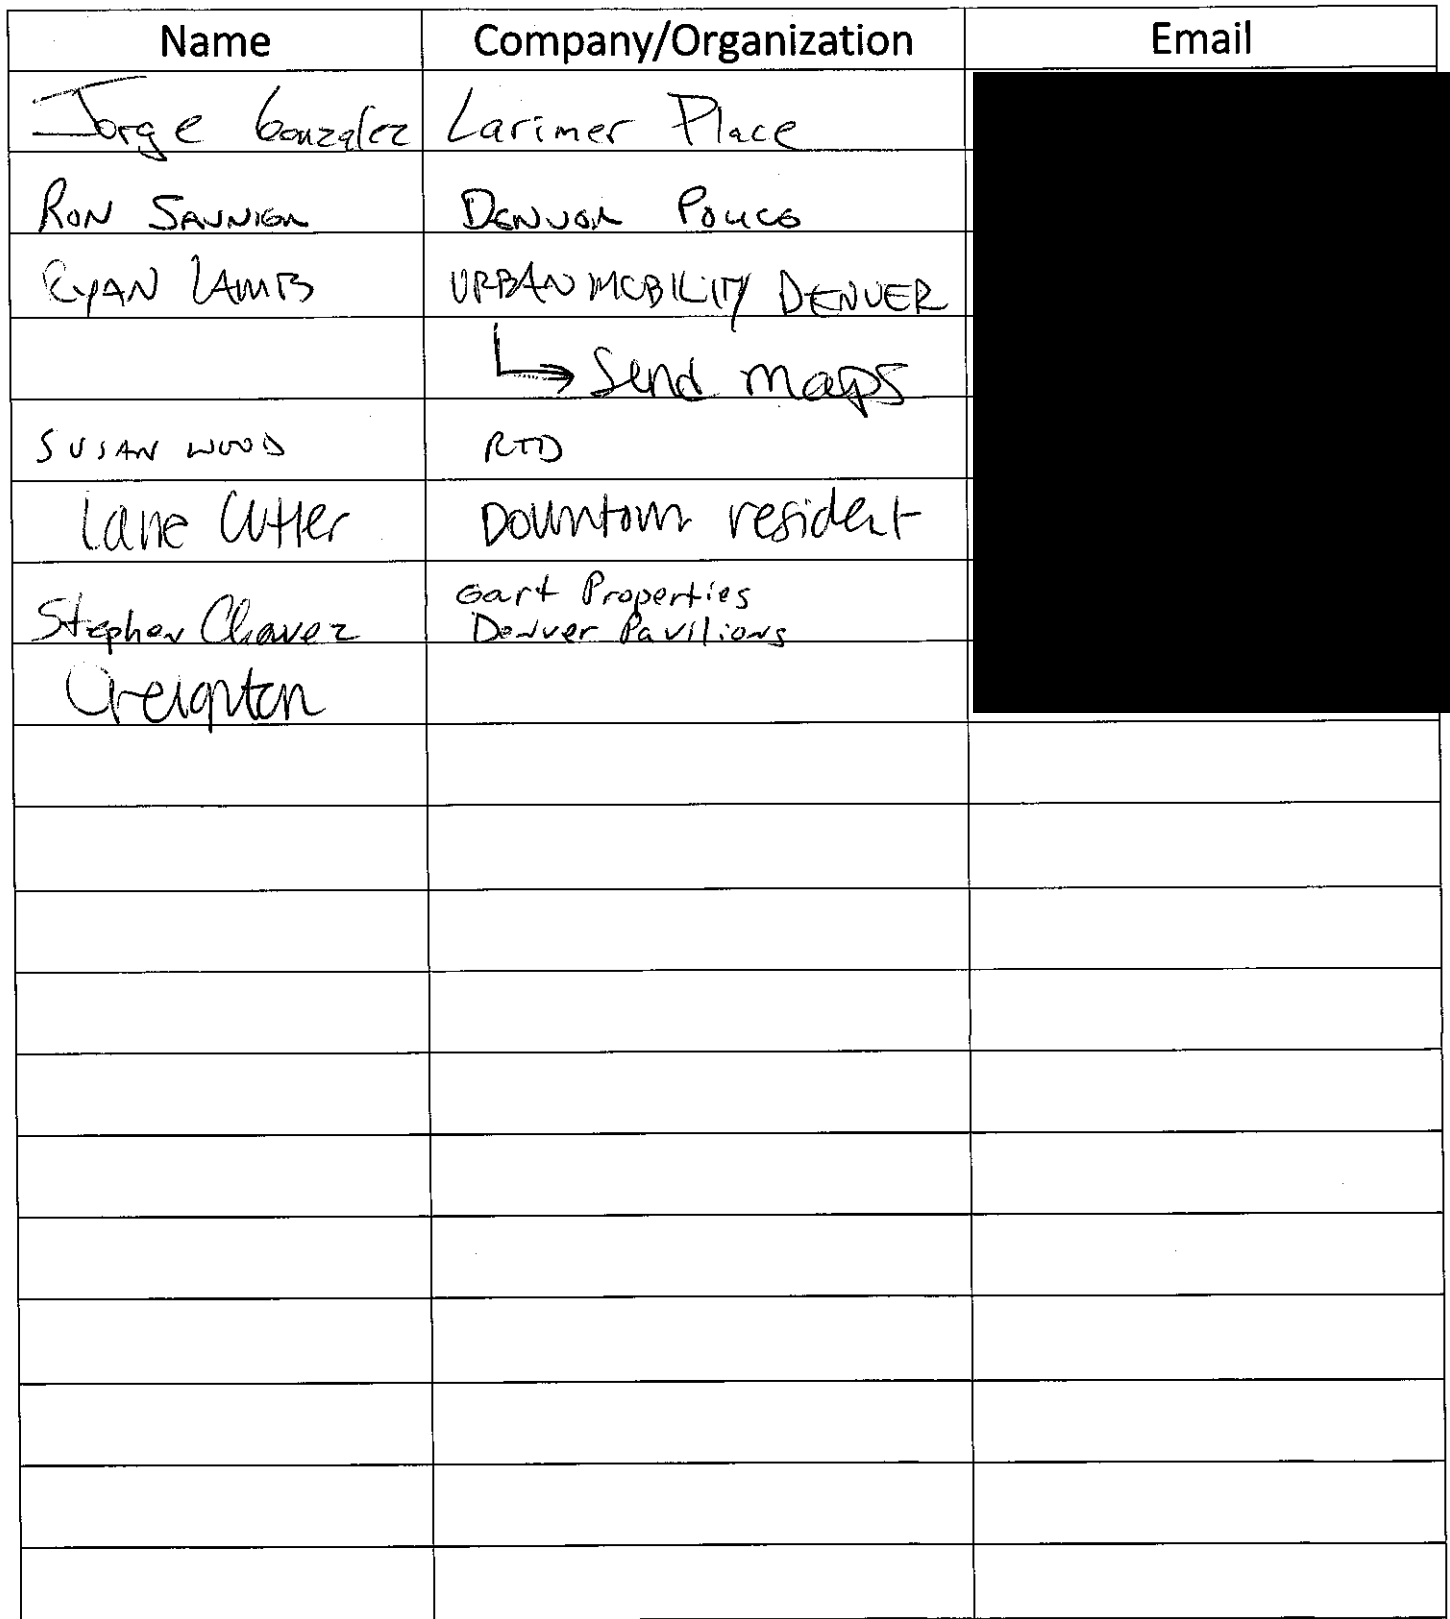 Name Company/Organization Email
Jorge Gonzalez Larimer Place
RON SAUNIER DENVER POLICE
RYAN LAMB URBAN MOBILITY DENVER
↳ Send maps
SUSAN WOOD RTD
Lane Cutter Downtown resident
Stephen Chavez Gart Properties
Denver Pavilions
Creighton